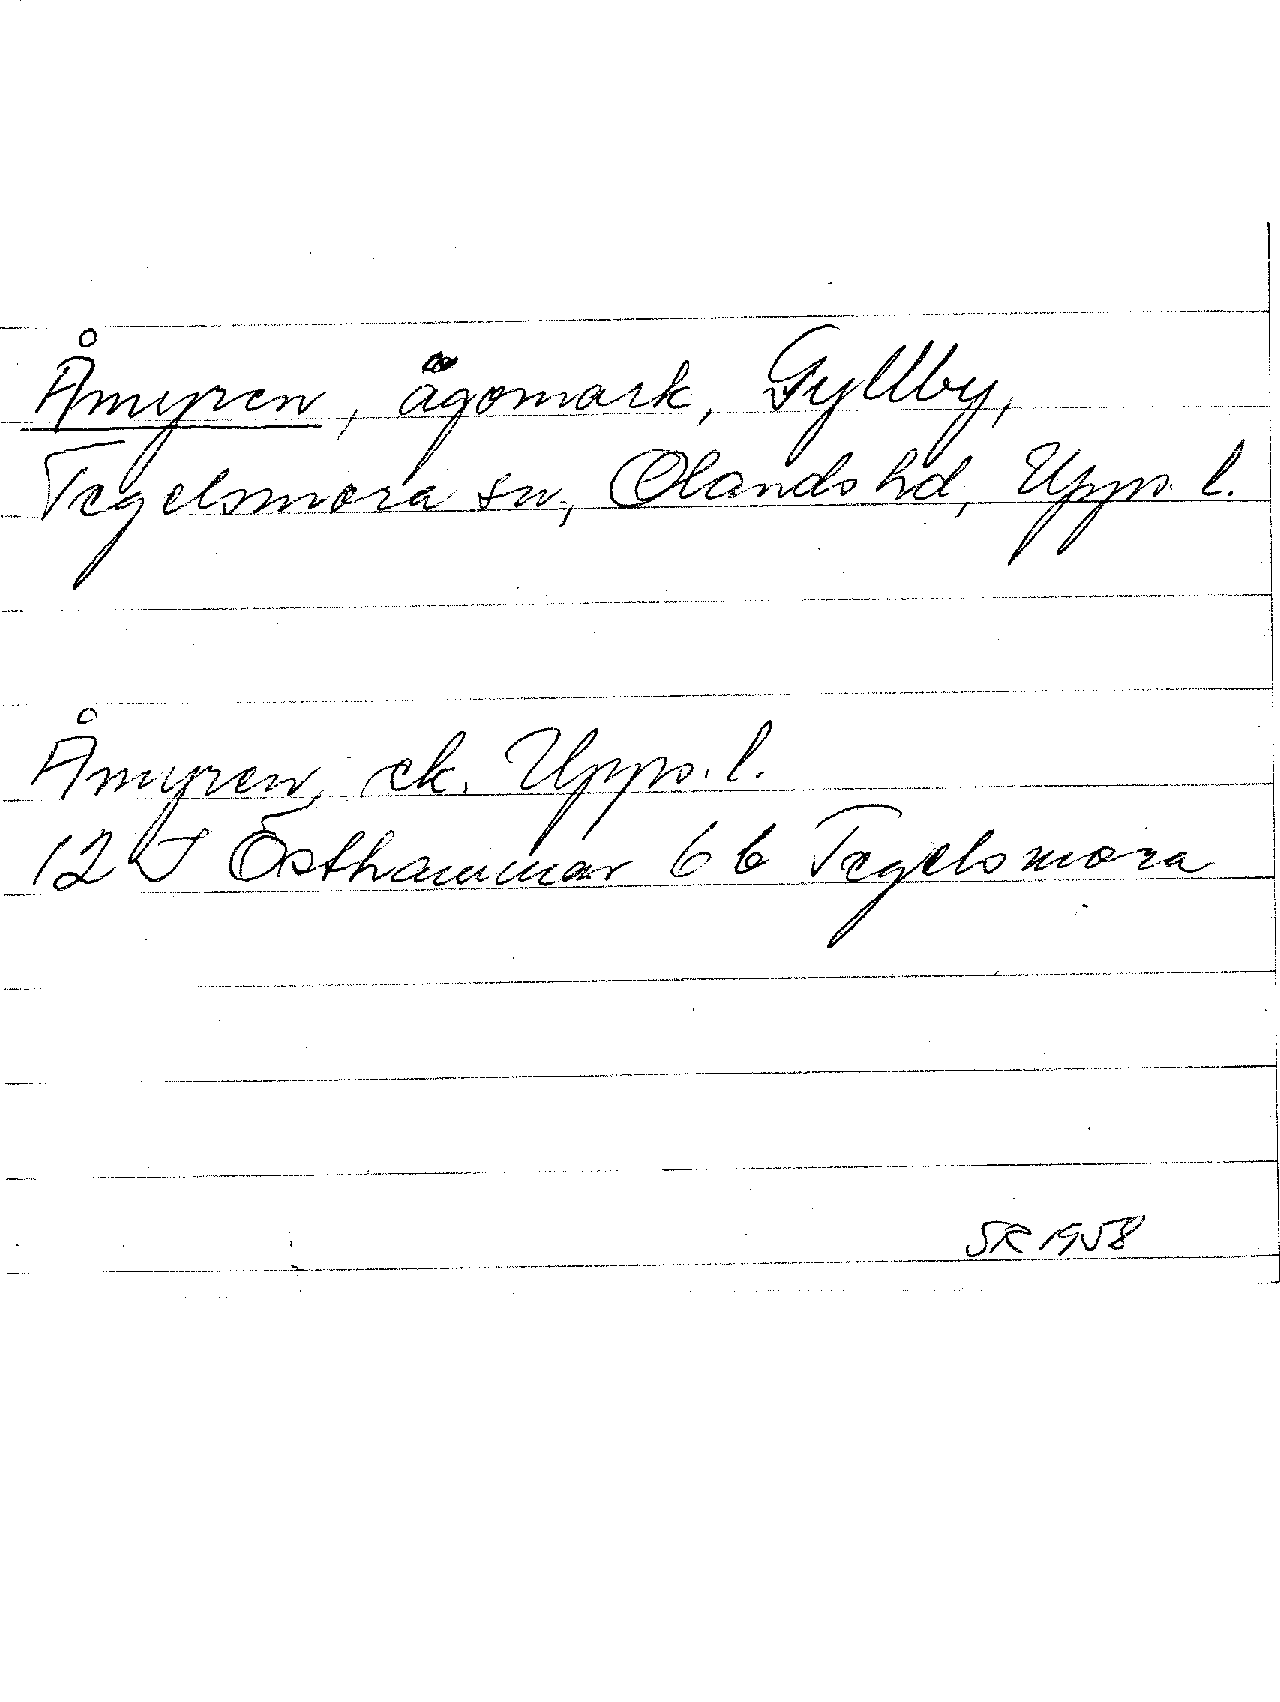 Åmyren, ägomark, Gyllby,
Tegelsmora sn, Olands hd, Upps. l.
Åmyren, ek. Upps. l.
12 I Östhammar 6 b Tegelsmora
SR 1958